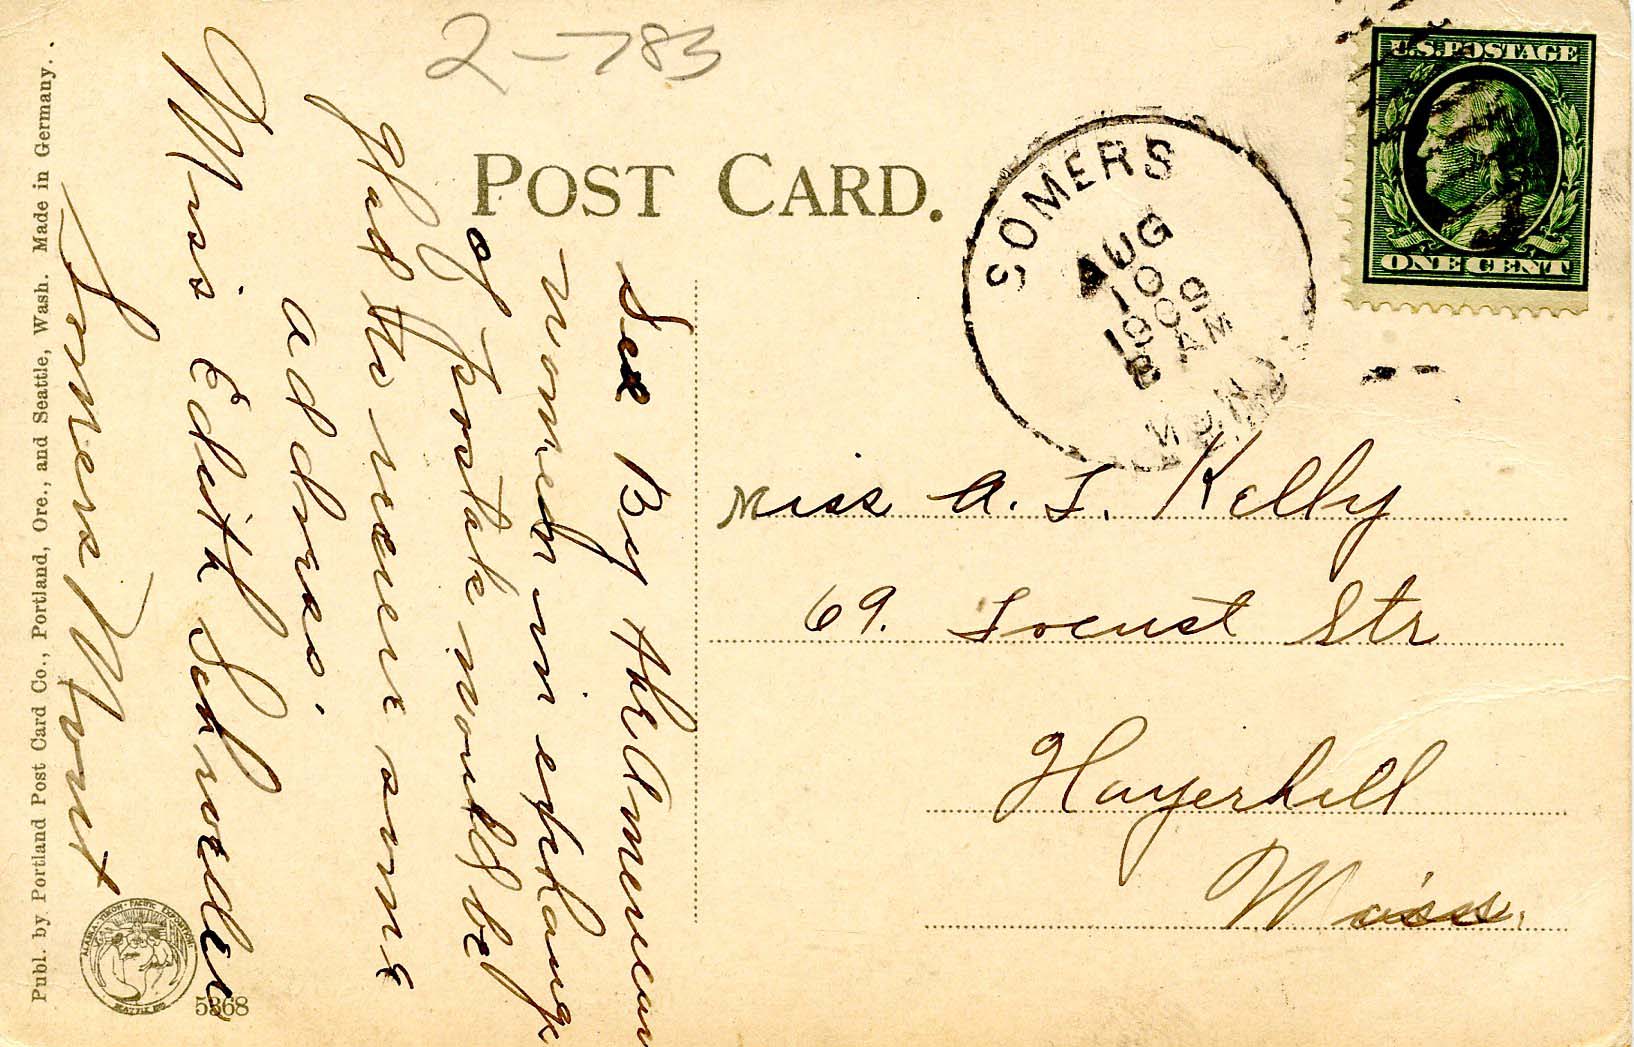 2-783
POST CARD.
U.S. POSTAGE
ONE CENT
SOMERS
AUG
10
1909
8 AM
MONT.
Miss A. L. Kelly
69. Locust Str
Haverhill
Mass.
See By the American
Women in exchange
of Postals would be
glad to receive some
address.
Miss Edith Schroeder
Somers Mont
Publ. by Portland Post Card Co., Portland, Ore., and Seattle, Wash. Made in Germany.
ALASKA-YUKON-PACIFIC EXPOSITION
SEATTLE 1909
5368